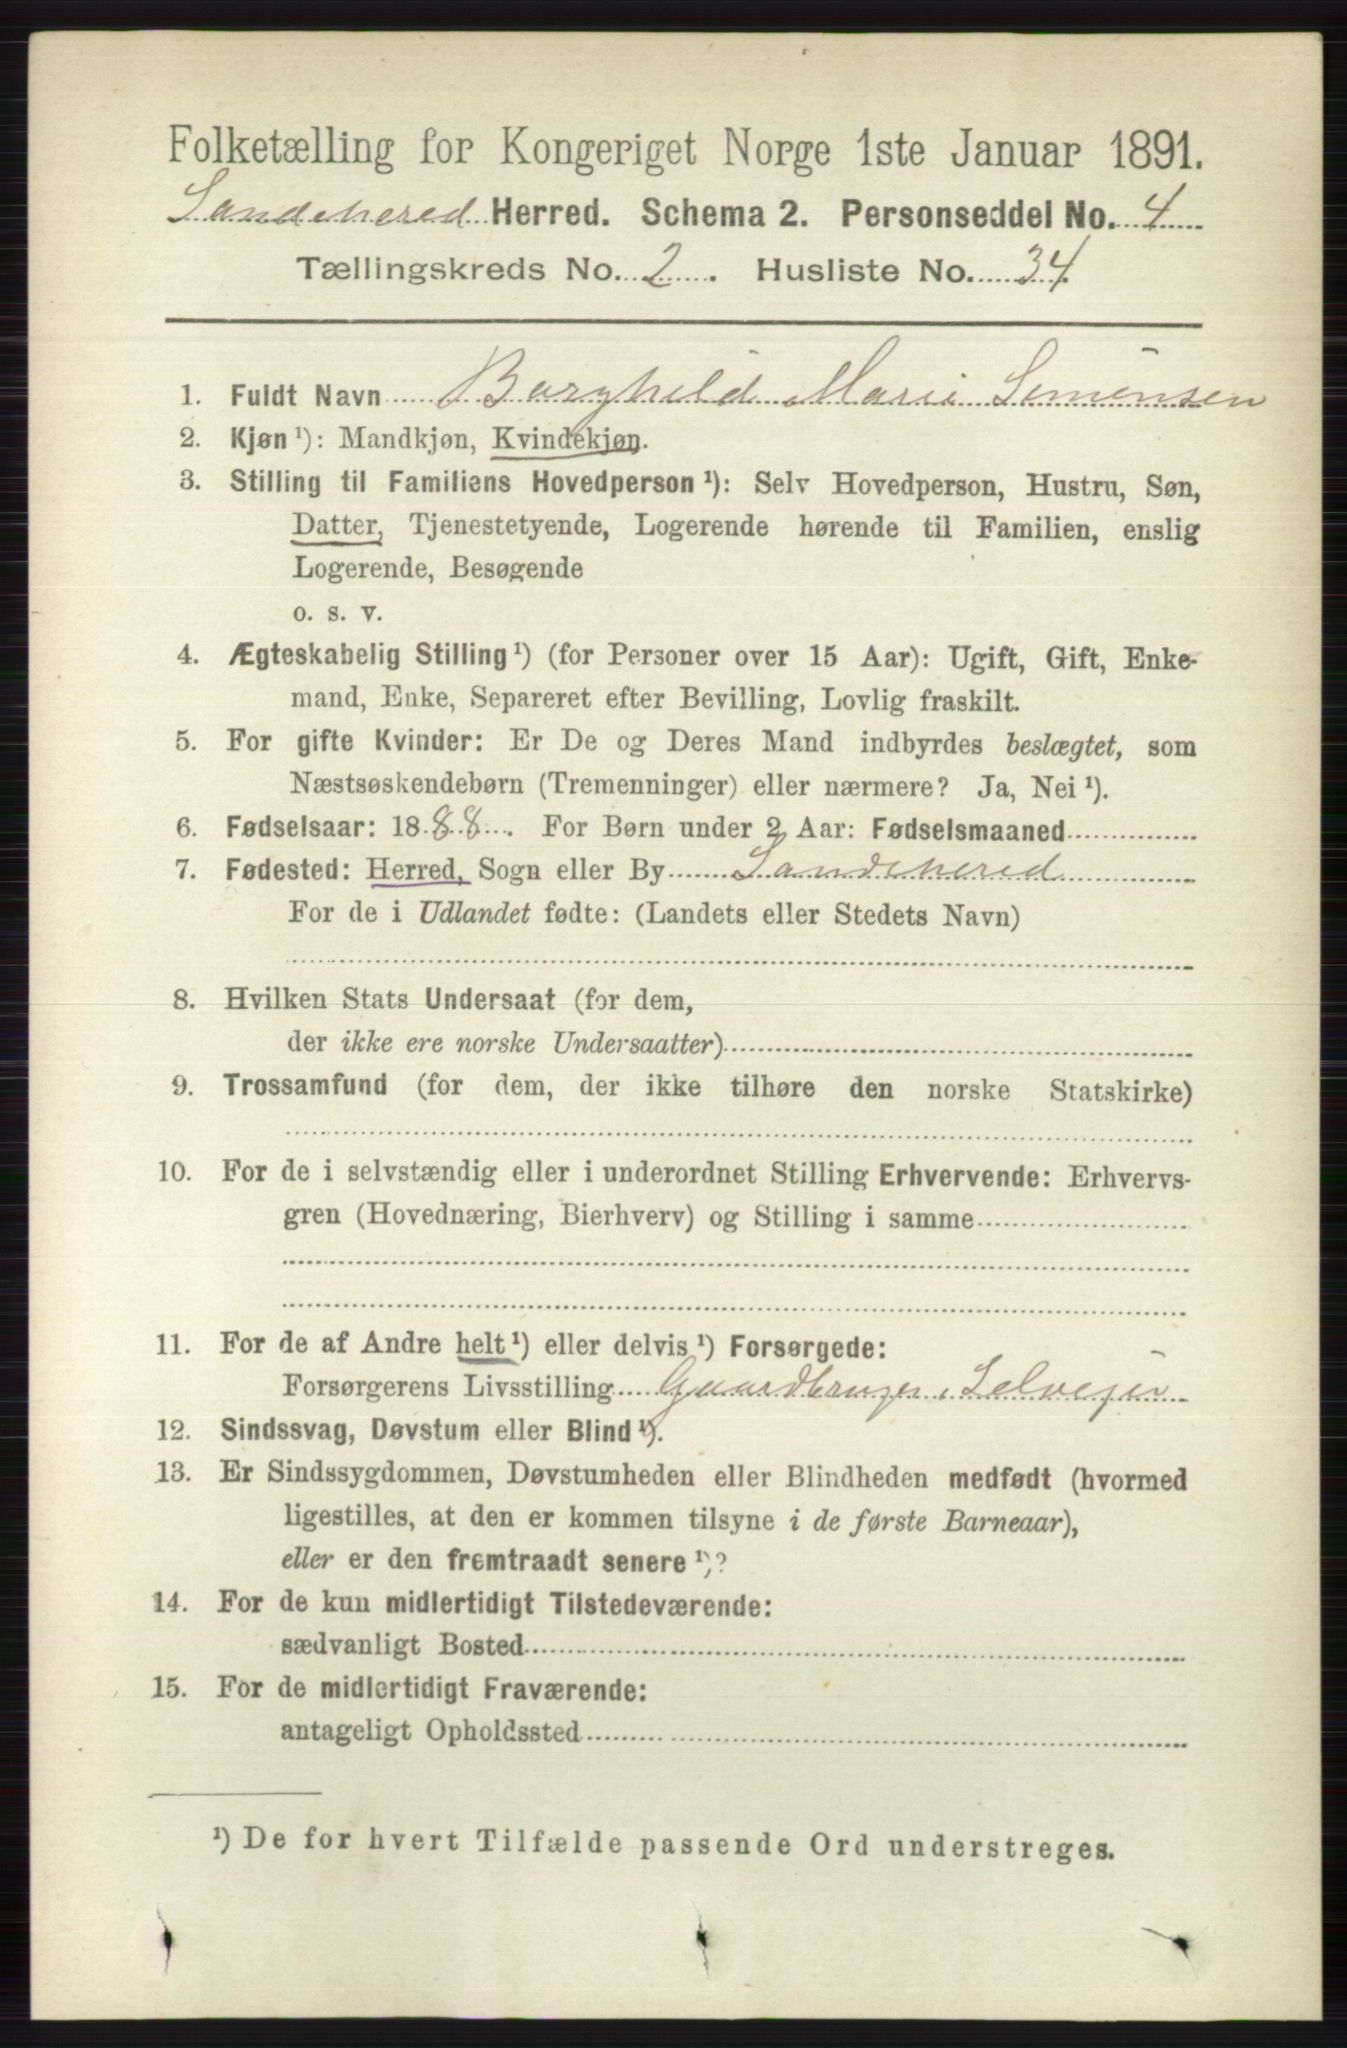 Folketælling for Kongeriget Norge 1ste Januar 1891.
Sandehered Herred. Schema 2. Personseddel No. 4
Tællingskreds No. 2. Husliste No. 34
1. Fuldt Navn Borghild Marie Simonsen
2. Kjøn ¹): Mandkjøn, Kvindekjøn.
3. Stilling til Familiens Hovedperson ¹): Selv Hovedperson, Hustru, Søn,
Datter, Tjenestetyende, Logerende hørende til Familien, enslig
Logerende, Besøgende
o. s. v.
4. Ægteskabelig Stilling ¹) (for Personer over 15 Aar): Ugift, Gift, Enke-
mand, Enke, Separeret efter Bevilling, Lovlig fraskilt.
5. For gifte Kvinder: Er De og Deres Mand indbyrdes beslægtet, som
Næstsøskendebørn (Tremenninger) eller nærmere? Ja, Nei ¹).
6. Fødselsaar: 1888. For Børn under 2 Aar: Fødselsmaaned
7. Fødested: Herred, Sogn eller By Sandehered
For de i Udlandet fødte: (Landets eller Stedets Navn)
8. Hvilken Stats Undersaat (for dem,
der ikke ere norske Undersaatter)
9. Trossamfund (for dem, der ikke tilhøre den norske Statskirke)
10. For de i selvstændig eller i underordnet Stilling Erhvervende: Erhvervs-
gren (Hovednæring, Bierhverv) og Stilling i samme
11. For de af Andre helt ¹) eller delvis ¹) Forsørgede:
Forsørgerens Livsstilling Gaardbruger, Selveier
12. Sindssvag, Døvstum eller Blind ¹).
13. Er Sindssygdommen, Døvstumheden eller Blindheden medfødt (hvormed
ligestilles, at den er kommen tilsyne i de første Barneaar),
eller er den fremtraadt senere ¹)?
14. For de kun midlertidigt Tilstedeværende:
sædvanligt Bosted
15. For de midlertidigt Fraværende:
antageligt Opholdssted
¹) De for hvert Tilfælde passende Ord understreges.